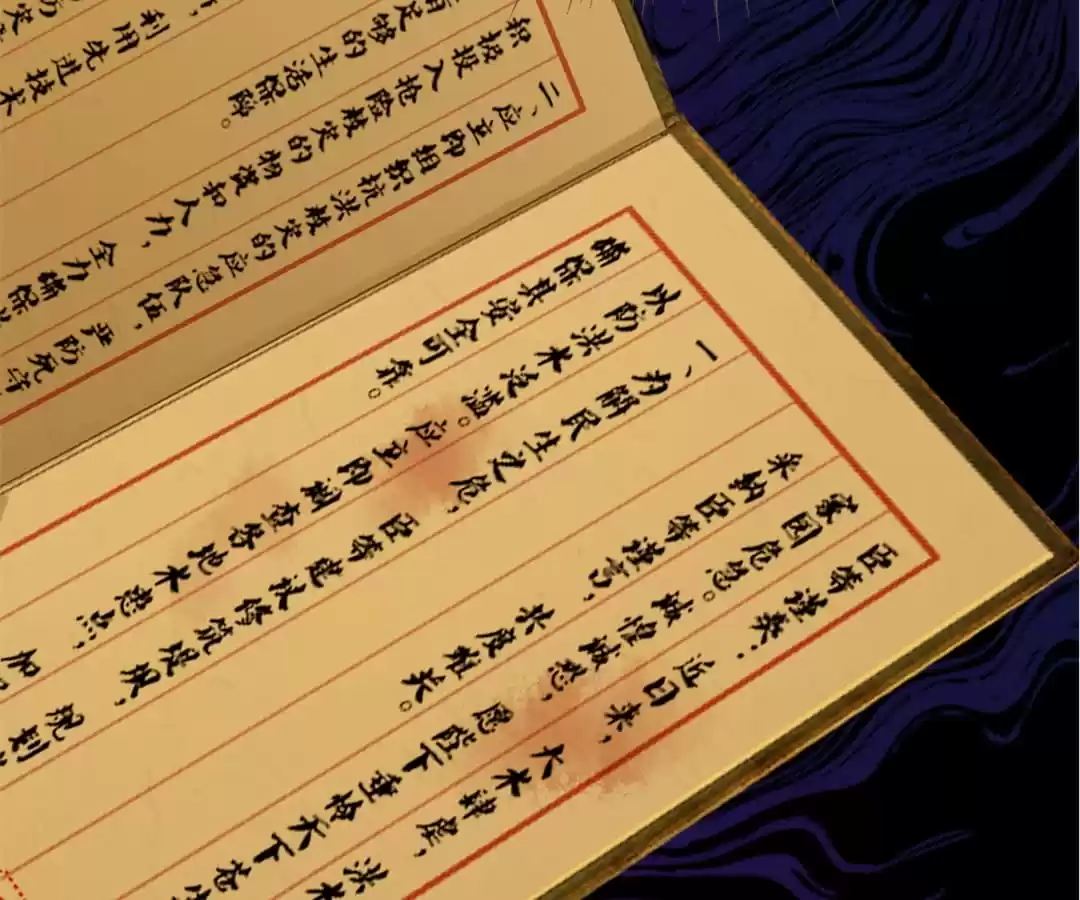 臣等谨奏：近日来，大水肆虐，洪水
家园危急。诚惶诚恐，愿陛下重怜天下苍生
采纳臣等谨言，共度难关。
一、为解民生之危，臣等建议修筑堤坝，规划
以防洪水泛滥。应立即调查各地水患点，加
确保其安全可靠。
二、应立即组织抗洪救灾的应急队伍，严防死守
积极投入抢险救灾的物资和人力，全力确保
有足够的生活保障。
利用先进技术